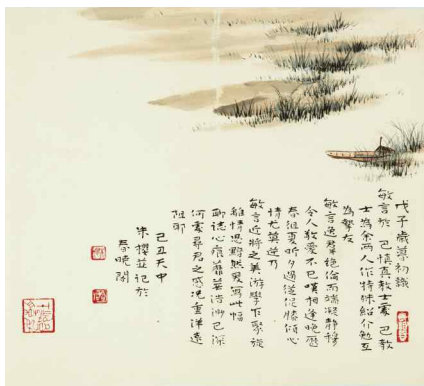 戊子歲初識
敏言於 真教士處 教
士為余兩人作特殊紹介勉互
為摯友
敏言逸羣絕倫而端凝靜穆
令人敬愛不已嘆相逢晚曆
春徂夏昕夕過從促膝傾心
情尤莫逆乃
敏言近將之美游學聚旋
離情思黯然爰寫此幅
聊誌心痕若浩渺已深
何尋君之感況重洋遠
阻耶
己丑天中
朱櫻並記於
春曉閣